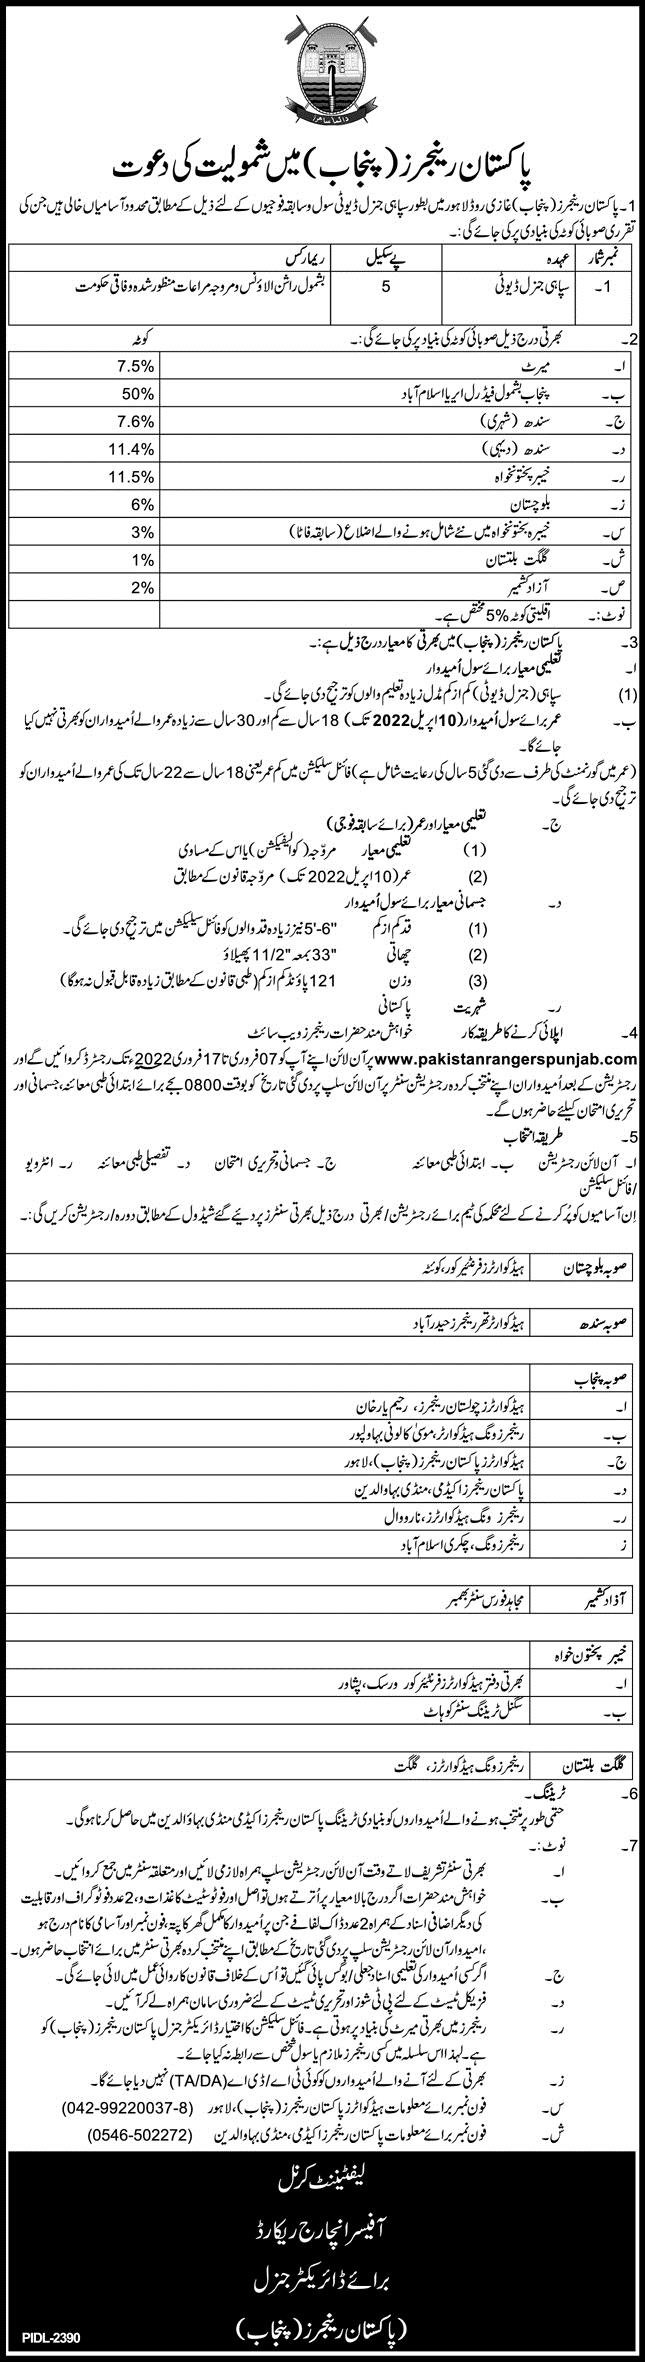 پاکستان رینجرز (پنجاب) میں شمولیت کی دعوت
1۔ پاکستان رینجرز (پنجاب) غازی روڈ لاہور میں بطور سپاہی جنرل ڈیوٹی سول و سابقہ فوجیوں کے لئے ذیل کے مطابق محدود آسامیاں خالی ہیں جن کی
تقرری صوبائی کوٹہ کی بنیادی پر کی جائے گی:۔
نمبر شمار عہدہ پے سکیل ریمارکس
1۔ سپاہی جنرل ڈیوٹی 5 بشمول راشن الاؤنس و مروجہ مراعات منظور شدہ وفاقی حکومت
2۔ بھرتی درج ذیل صوبائی کوٹہ کی بنیاد پر کی جائے گی:۔ کوٹہ
ا۔ میرٹ 7.5%
ب۔ پنجاب بشمول فیڈرل ایریا اسلام آباد 50%
ج۔ سندھ (شہری) 7.6%
د۔ سندھ (دیہی) 11.4%
ر۔ خیبر پختونخواہ 11.5%
ز۔ بلوچستان 6%
س۔ خیبرہ پختونخواہ میں نئے شامل ہونے والے اضلاع (سابقہ فاٹا) 3%
ش۔ گلگت بلتستان 1%
ص۔ آزاد کشمیر 2%
نوٹ:۔ اقلیتی کوٹہ 5% مختص ہے۔
3۔ پاکستان رینجرز (پنجاب) میں بھرتی کا معیار درج ذیل ہے:۔
ا۔ تعلیمی معیار برائے سول اُمیدوار
(1) سپاہی (جنرل ڈیوٹی) کم از کم مڈل زیادہ تعلیم والوں کو ترجیح دی جائے گی۔
ب۔ عمر برائے سول اُمیدوار (10 اپریل 2022 تک) 18 سال سے کم اور 30 سال سے زیادہ عمر والے اُمیدواران کو بھرتی نہیں کیا
جائے گا۔
(عمر میں گورنمنٹ کی طرف سے دی گئی 5 سال کی رعایت شامل ہے) فائنل سلیکشن میں کم عمر یعنی 18 سال سے 22 سال تک کی عمر والے اُمیدواران کو
ترجیح دی جائے گی۔
ج۔ تعلیمی معیار اور عمر (برائے سابقہ فوجی)
(1) تعلیمی معیار مروّجہ (کوالیفیکیشن) یا اس کے مساوی
(2) عمر (10 اپریل 2022 تک) مروّجہ قانون کے مطابق
د۔ جسمانی معیار برائے سول اُمیدوار
(1) قد کم از کم 5'-6" نیز زیادہ قد والوں کو فائنل سیلیکشن میں ترجیح دی جائے گی۔
(2) چھاتی 33" بمعہ 11/2" پھیلاؤ
(3) وزن 121 پاؤنڈ کم از کم (طبی قانون کے مطابق زیادہ قابل قبول نہ ہوگا)
ر۔ شہریت پاکستانی
4۔ اپلائی کرنے کا طریقہ کار خواہش مند حضرات رینجرز ویب سائٹ
www.pakistanrangerspunjab.com پر آن لائن اپنے آپ کو 07 فروری تا 17 فروری 2022ء تک رجسٹرڈ کروائیں گے اور
رجسٹریشن کے بعد اُمیدواران اپنے منتخب کردہ رجسٹریشن سنٹر پر آن لائن سلپ پر دی گئی تاریخ کو بوقت 0800 بجے برائے ابتدائی طبی معائنہ، جسمانی اور
تحریری امتحان کیلئے حاضر ہوں گے۔
5۔ طریقہ انتخاب
ا۔ آن لائن رجسٹریشن ب۔ ابتدائی طبی معائنہ ج۔ جسمانی و تحریری امتحان د۔ تفصیلی طبی معائنہ ر۔ انٹرویو
/فائنل سلیکشن
اِن آسامیوں کو پُر کرنے کے لئے محکمہ کی ٹیم برائے رجسٹریشن/بھرتی درج ذیل بھرتی سنٹرز پر دیئے گئے شیڈول کے مطابق دورہ/رجسٹریشن کریں گی:۔
صوبہ بلوچستان ہیڈ کوارٹرز فرنٹیئر کور، کوئٹہ
صوبہ سندھ ہیڈ کوارٹر تھر رینجرز حیدرآباد
صوبہ پنجاب
ا۔ ہیڈ کوارٹرز چولستان رینجرز، رحیم یار خان
ب۔ رینجرز ونگ ہیڈ کوارٹر، موسیٰ کالونی بہاولپور
ج۔ ہیڈ کوارٹرز پاکستان رینجرز (پنجاب)، لاہور
د۔ پاکستان رینجرز اکیڈمی، منڈی بہاوالدین
ر۔ رینجرز ونگ ہیڈ کوارٹرز، نارووال
ز رینجرز ونگ، چکری اسلام آباد
آزاد کشمیر مجاہد فورس سنٹر بھمبر
خیبر پختون خواہ
ا۔ بھرتی دفتر ہیڈ کوارٹرز فرنٹیئر کور ورسک، پشاور
ب۔ سگنل ٹریننگ سنٹر کوہاٹ
گلگت بلتستان رینجرز ونگ ہیڈ کوارٹرز، گلگت
6۔ ٹریننگ۔
حتمی طور پر منتخب ہونے والے اُمیدواروں کو بنیادی ٹریننگ پاکستان رینجرز اکیڈمی منڈی بہاؤالدین میں حاصل کرنا ہوگی۔
7۔ نوٹ:۔
ا۔ بھرتی سنٹر تشریف لاتے وقت آن لائن رجسٹریشن سلپ ہمراہ لازمی لائیں اور متعلقہ سنٹر میں جمع کروائیں۔
ب۔ خواہش مند حضرات اگر درج بالا معیار پر اُترتے ہوں تو اصل اور فوٹو سٹیٹ کاغذات و، 2 عدد فوٹوگراف اور قابلیت
کی دیگر اضافی اسناد کے ہمراہ 2 عدد ڈاک لفافے جن پر اُمیدوار کا مکمل گھر کا پتہ، فون نمبر اور آسامی کا نام درج ہو
، امیدوار آن لائن رجسٹریشن سلپ پر دی گئی تاریخ کے مطابق اپنے منتخب کردہ بھرتی سنٹر میں برائے انتخاب حاضر ہوں۔
ج۔ اگر کسی اُمیدوار کی تعلیمی اسناد جعلی/بوگس پائی گئیں تو اُس کے خلاف قانون کاروائی عمل میں لائی جائے گی۔
د۔ فزیکل ٹیسٹ کے لئے پی ٹی شوز اور تحریری ٹیسٹ کے لئے ضروری سامان ہمراہ لے کر آئیں۔
ر۔ رینجرز میں بھرتی میرٹ کی بنیاد پر ہوتی ہے۔ فائنل سلیکشن کا اختیار ڈائریکٹر جنرل پاکستان رینجرز (پنجاب) کو
ہے۔ لہٰذا اس سلسلہ میں کسی رینجرز ملازم یا سول شخص سے رابطہ نہ کیا جائے۔
ز۔ بھرتی کے لئے آنے والے اُمیدواروں کو کوئی ٹی اے/ڈی اے (TA/DA) نہیں دیا جائے گا۔
س۔ فون نمبر برائے معلومات ہیڈ کوارٹرز پاکستان رینجرز (پنجاب)، لاہور (042-99220037-8)
ش۔ فون نمبر برائے معلومات پاکستان رینجرز اکیڈمی، منڈی بہاوالدین (0546-502272)
لیفٹیننٹ کرنل
آفیسر انچارج ریکارڈ
برائے ڈائریکٹر جنرل
(پاکستان رینجرز (پنجاب)
PIDL-2390